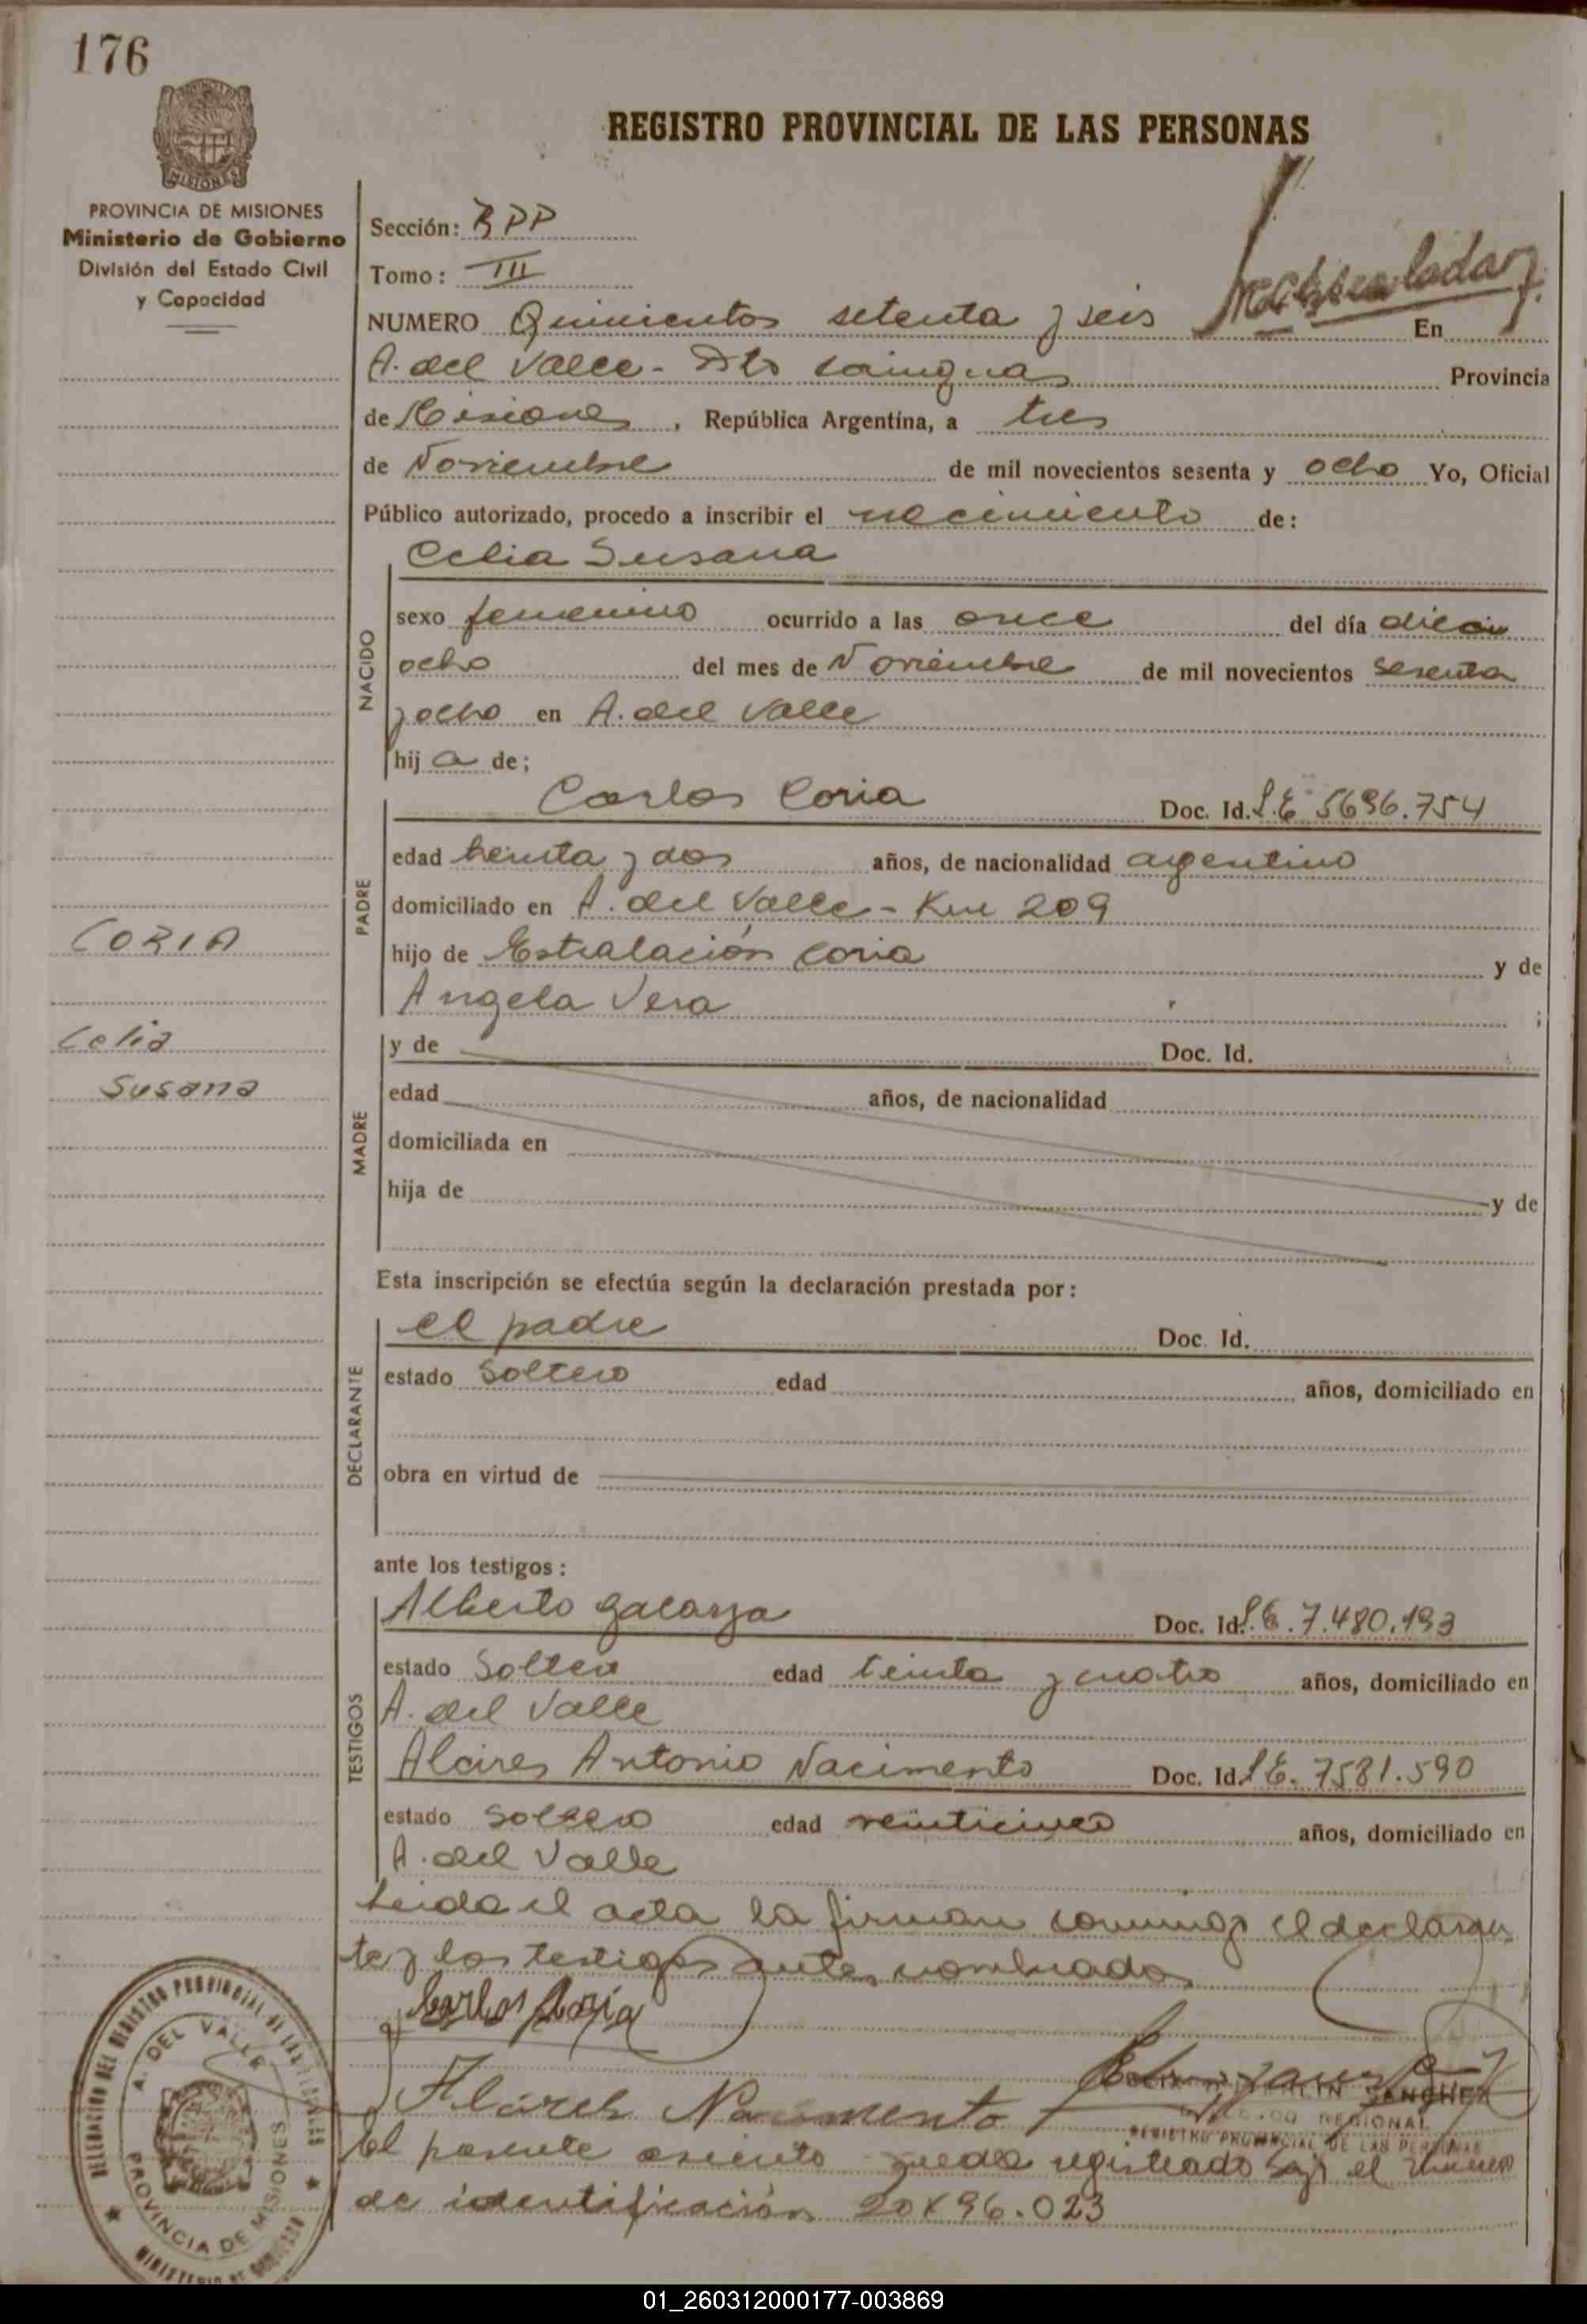 176
MISIONES
PROVINCIA DE MISIONES
Ministerio de Gobierno
División del Estado Civil
y Capacidad
REGISTRO PROVINCIAL DE LAS PERSONAS
Sección: RPP
Tomo: III
NUMERO Quinientos setenta y seis En
A. del Valle - Dto Cainguas Provincia
de Misiones, República Argentina, a tres
de Noviembre de mil novecientos sesenta y ocho Yo, Oficial
Público autorizado, procedo a inscribir el nacimiento de:
Celia Susana
NACIDO
sexo femenino ocurrido a las once del día dieci
ocho del mes de Noviembre de mil novecientos sesenta
y ocho en A. del Valle
hij a de;
PADRE
Carlos Coria Doc. Id. L.E 5696.754
edad treinta y dos años, de nacionalidad argentino
domiciliado en A. del Valle - Km 209
hijo de Estralación Coria y de
Angela Vera ;
CORIA
Celia
Susana
MADRE
y de Doc. Id.
edad años, de nacionalidad
domiciliada en
hija de y de
Esta inscripción se efectúa según la declaración prestada por:
DECLARANTE
el padre Doc. Id.
estado soltero edad años, domiciliado en
obra en virtud de
ante los testigos:
TESTIGOS
Alberto Galarza Doc. Id. L.E. 7.480.193
estado Soltero edad treinta y cuatro años, domiciliado en
A. del Valle
Alcires Antonio Nacimento Doc. Id. L.E. 7581.590
estado soltero edad veinticinco años, domiciliado en
A. del Valle
Leida el acta la firman conmigo el declaran
te y los testigos antes nombrados
Carlos Coria
Alcires Nacimento
SANCHEZ
REGIONAL
REGISTRO PROVINCIAL DE LAS PERSONAS
El presente asiento queda registrado bajo el número
de identificación 20896.023
DELEGACION DEL REGISTRO PROVINCIAL DE LAS PERSONAS
A. DEL VALLE
PROVINCIA DE MISIONES
MINISTERIO DE GOBIERNO
01_260312000177-003869